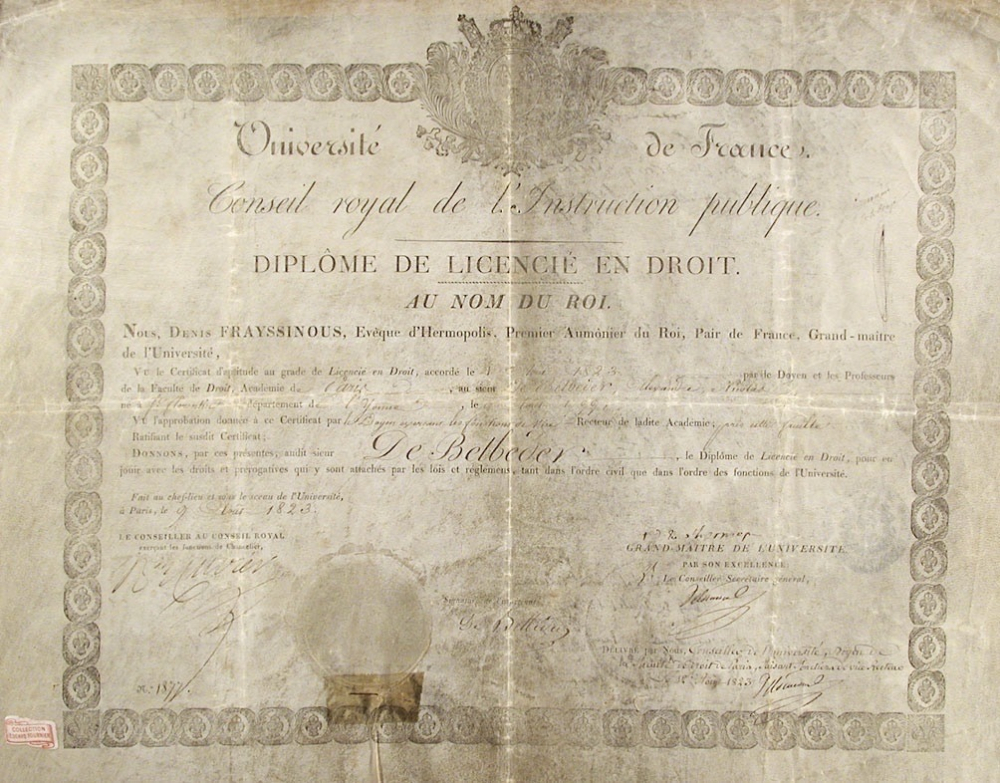 Université de France.
Conseil royal de l'Instruction publique.
DIPLÔME DE LICENCIÉ EN DROIT.
AU NOM DU ROI.
Nous, DENIS FRAYSSINOUS, Evêque d'Hermopolis, Premier Aumônier du Roi, Pair de France, Grand-maître
de l'Université,
Vu le Certificat d'aptitude au grade de Licencié en Droit, accordé le 1823 par de Doyen et les Professeurs
de la Faculté de Droit, Académie de Paris au sieur De Belbeder Alexandre Nicolas
département de l'Yonne, le
Vu l'approbation donnée à ce Certificat par le Doyen exerçant les fonctions de Recteur de ladite Académie,
Ratifiant le susdit Certificat;
DONNONS, par ces présentes, audit sieur De Belbeder, le Diplôme de Licencié en Droit, pour en
jouir avec les droits et prérogatives qui y sont attachés par les lois et réglemens, tant dans l'ordre civil que dans l'ordre des fonctions de l'Université.
Fait au chef-lieu et sous le sceau de l'Université,
à Paris, le 9 Août 1823.
LE CONSEILLER AU CONSEIL ROYAL
exerçant les fonctions de Chancelier,
GRAND-MAITRE DE L'UNIVERSITÉ
PAR SON EXCELLENCE:
Le Conseiller Secrétaire général,
Signature de l'impétrant
De Belbeder
DÉLIVRÉ par Nous, Conseiller de l'université, Doyen de
la faculté de droit de Paris, faisant fonctions de vice Recteur
1823
N.° 1877
COLLECTION